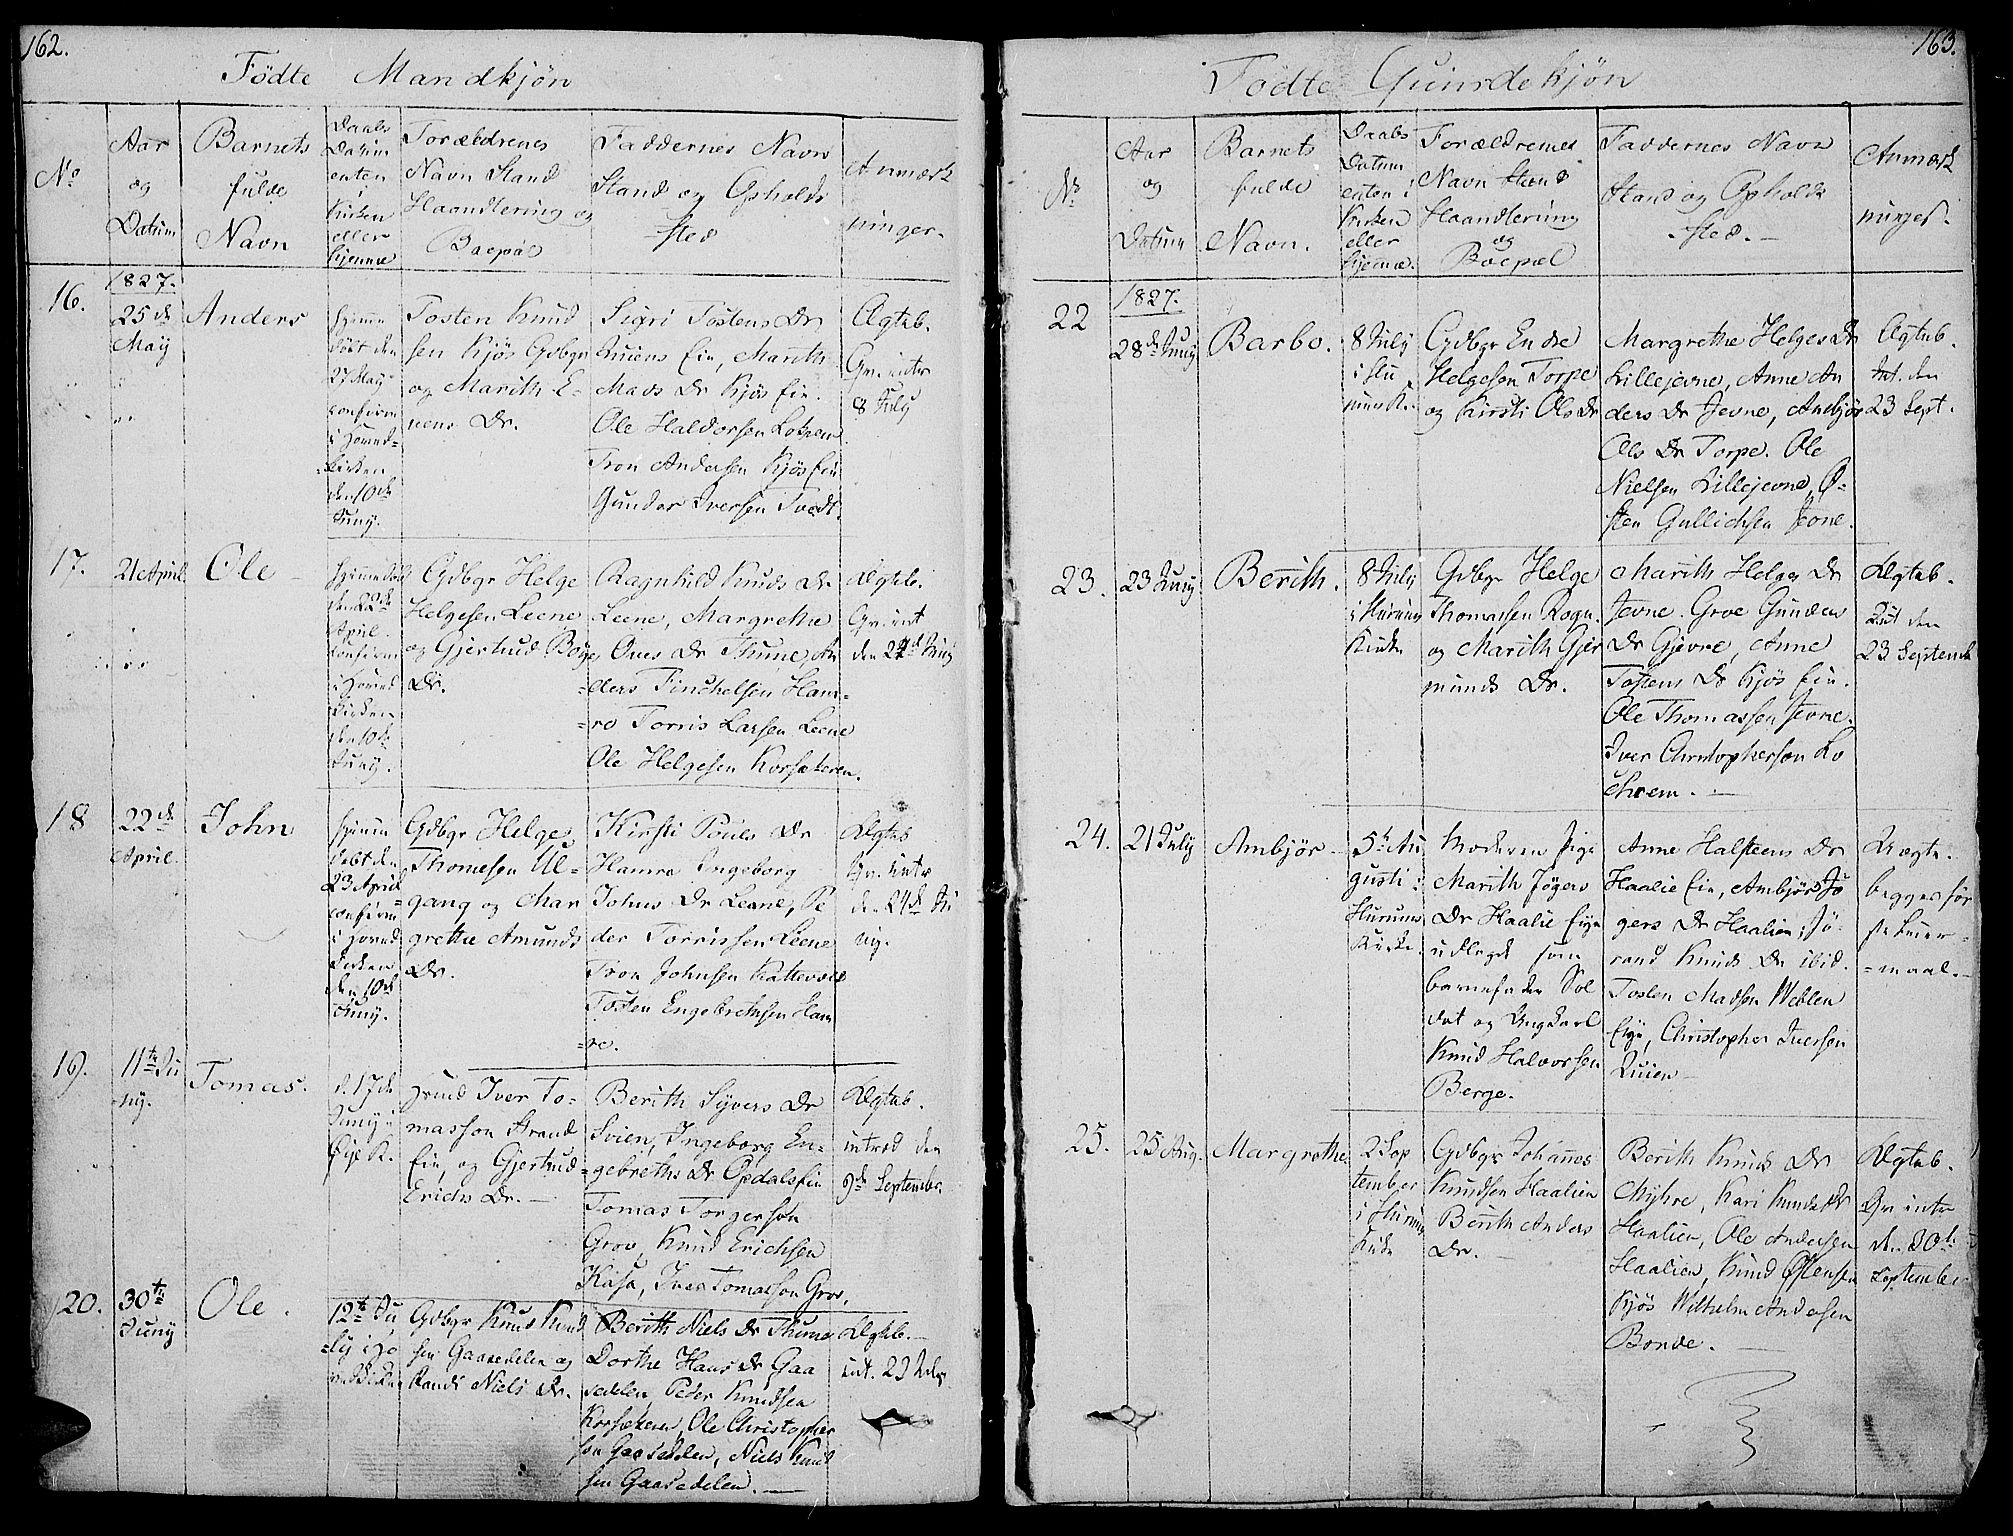 162.
Födte Mandkjön
No
Aar
og
Datum
Barnets
fulde
Navn
Daabs
Datum
enten
i
Kirken
eller
hjemme
Forældrenes
Navn Stand
Haandtering og
Boepæl
Faddernes Navn
Stand og Opholds
sted
Anmærk
ninger.
16.
1827.
25de
May
Anders
hjemme
döbt den
27 May
confirm
i Hoved=
kirken
den 10de
Juny.
Tosten Knud
sen Kjös Gdbgr
og Marith E=
nens Dr.
Sigri Tostens Dr
Quiens Eie, Marith
Mads Dr Kjös Eie.
Ole Haldorsen Lokpen
Tron Andersen Kjös Eie
Gunder Iversen Tvedt.
Ægteb.
Qv. intr
8 July
17.
21 April
Ole
hjemme döbt
den 22de
April.
confirm
i Hoved
kirken
den 10de
Juny.
Gdbgr Helge
Helgesen Leene
og Gjertrud Boye
Dr.
Ragnhild Knuds Dr
Leene, Margrethe
Oves Dr Thune, An
=ders Finchelsen Ham=
=ro Torris Larsen Leene
Ole Helgesen Korsækeren.
Ægteb.
Qv. int
den 24de Juny
18
22de
April.
John
hjemm
döbt den
23 April
confirm
i Hoved
kirken
den 10de
Juny.
Gdbgr Helge
Thomesen Ul=
gang og Mar
grethe Amunds
Dr.
Kirsti Pouls Dr
Hamro Ingeborg
Johns Dr Leene, Pe
der Torrissen Leene
Tron Johnsen Kattevold
Tosten Engebrethsen Ham
=ro.
Ægteb
Qv. intr
den 24de Ju
ny.
19.
11te Ju
ny.
Tomas.
d. 17de
Juny i
Öye K.
Huusmd Iver To=
masson Strand
Eie, og Gjertrud
Erichs Dr. —
Berith Syvers Dr
Svien, Ingeborg En=
=gebreths Dr Opdals Eie
Tomas Torgerson
Grov, Knud Erichsen
Kasa, Iver Tomasson Grov,
Ægteb.
introd den
9de September.
20.
30te
Juny
Ole.
12te Ju
=ly i Ho
vedkirken
Gdbgr Knud Knud
sen Gaasedelen og
Randi Niels Dr.
Berith Niels Dr Thune
Dorthe Hans Dr Gaa
sedelen, Peder Knudsen
Korsækeren, Ole Christopher
sen Gaasedelen, Niels Knud
sen Gaasedelen. —
Ægteb. —
int. 29 July
163.
Födte Quindekjön
No
Aar
og
Datum
Barnets
fulde
Navn.
Daabs
Datum
enten i
Kirken
eller
hjemme.
Forældrenes
Navn Stand
Haandtering
og
Boepæl
Faddernes Navn
Stand og Opholds
sted. —
Anmærk
ninger.
22
1827.
28de Juny
Barbo.
8 July
i Hu
rum K.
Gdbgr Endre
Helgesen Torpe
og Kirsti Ols Dr
Margrethe Helges Dr
Lillejevne, Anne An
ders Dr Jevne, Ambjör
Ols Dr Torpe. Ole
Nielsen Lillejevne, Ö=
sten Gullichsen Jevne.
Ægteb.
Int. den
23 Sept.
23.
23 Juny
Berith.
8 July
i Hurum
Kirke
Gdbgr Helge
Thomassen Rogn.
og Marith Gjer
munds Dr.
Marith Helges Dr
Jevne. Groe Gunders
Dr Gjevre, Anne
Tostens Dr Kjös Eie.
Ole Thomassen Jevne.
Iver Christophersen Lo
=chrem. —
Ægteb.
Int den
23 Septemb
24.
21 July
Ambjör
5te Au
gusti i
Hurums
Kirke.
Moderen Pige
Marith Jögers
Dr Haalie Eye
udlagt som
barnefader Sol
dat og Ungkarl
Knud Halvorsen
Berge.
Anne Halsteens Dr
Haalie Eie, Ambjör Jö
gers Dr Haalien, Jö=
rand Knuds Dr ibid.
Tosten Madsen Weblen
Eye, Christopher Iversen
Quien —
Uægte.
begges för
ste Leier=
=maal. —
25.
25 Aug.
Margrethe
2 Sep
tember
i Hurum
Kirke
Gdbgr Johannes
Knudsen Haalien
Berith Anders
Dr. —
Berith Knuds Dr
Myhre, Kari Knuds Dr
Haalien, Ole Andersen
Haalien, Knud Östensen
Kjös Wilhelm Andersen
Bonde. —
Ægteb.
Qv intr
den 30te
September